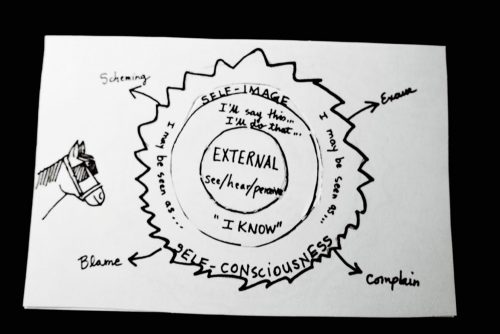 Scheming
Excuse
SELF-IMAGE
I'll say this...
I'll do that...
I may be seen as...
I may be seen as...
EXTERNAL
see/hear/perceive
"I KNOW"
SELF-CONSCIOUSNESS
Blame
Complain